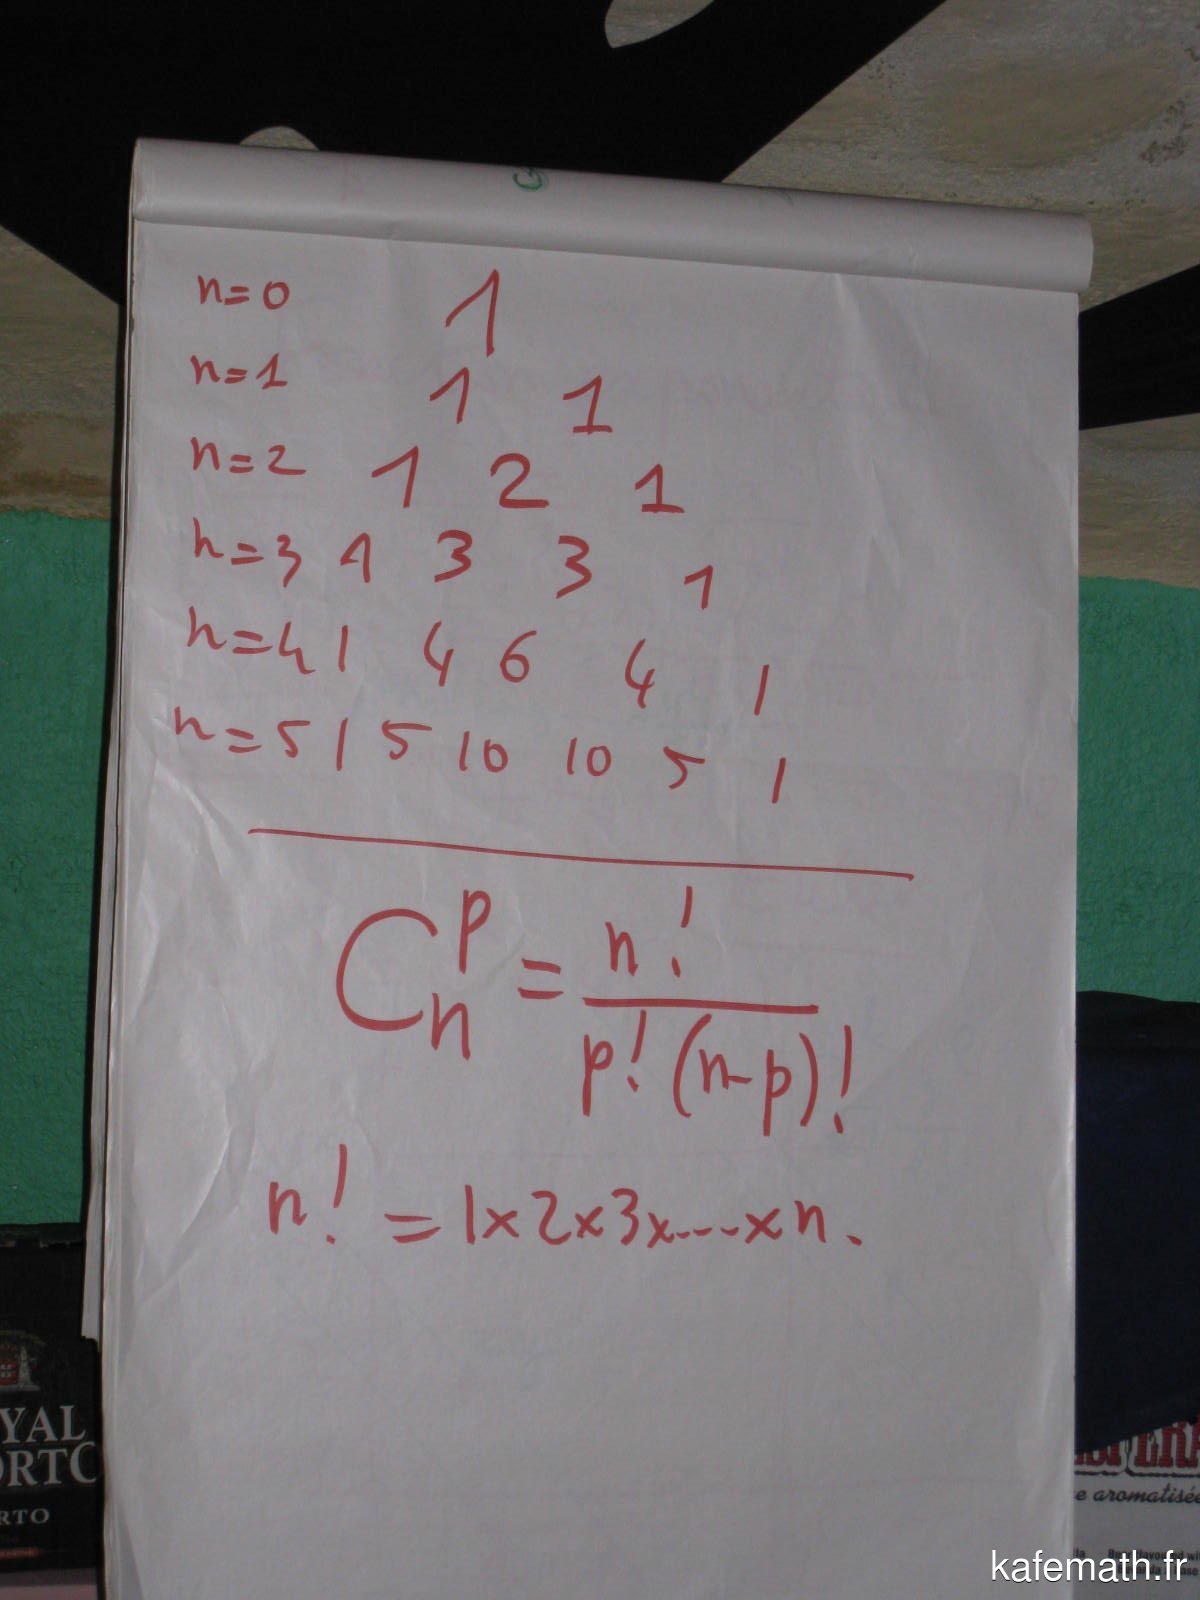 n=0 1
n=1 1 1
n=2 1 2 1
n=3 1 3 3 1
n=4 1 4 6 4 1
n=5 1 5 10 10 5 1
C_n^p = n! / p! (n-p)!
n! = 1x2x3x...xn.
YAL
ORTO
RTO
e aromatisée
kafemath.fr